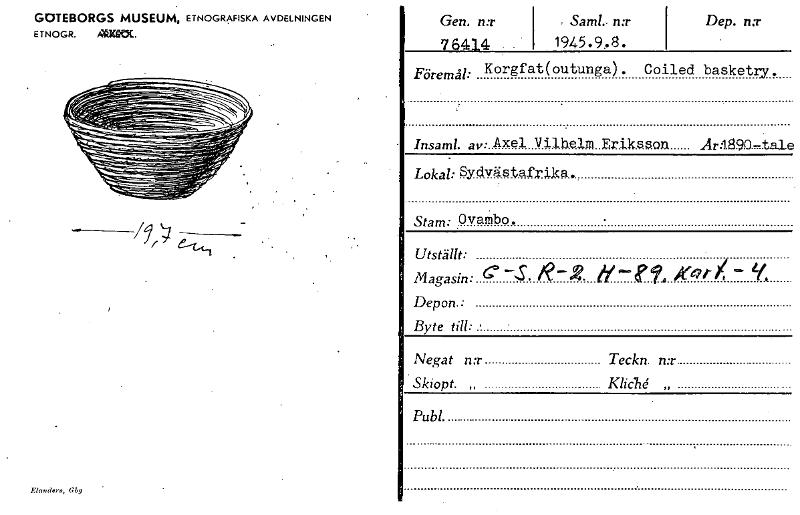 GÖTEBORGS MUSEUM, ETNOGRAFISKA AVDELNINGEN
ETNOGR. ARKEOL.
19,7 cm
Elanders, Gbg
Gen. n:r Saml. n:r Dep. n:r
76414 1945.9.8.
Föremål: Korgfat(outunga). Coiled basketry.
Insaml. av: Axel Vilhelm Eriksson År:1890-tale
Lokal: Sydvästafrika.
Stam: Ovambo.
Utställt:
Magasin: G-S. R-2. H-89. Kart. - 4.
Depon.:
Byte till:
Negat n:r Teckn. n:r
Skiopt. „ Kliché „
Publ.